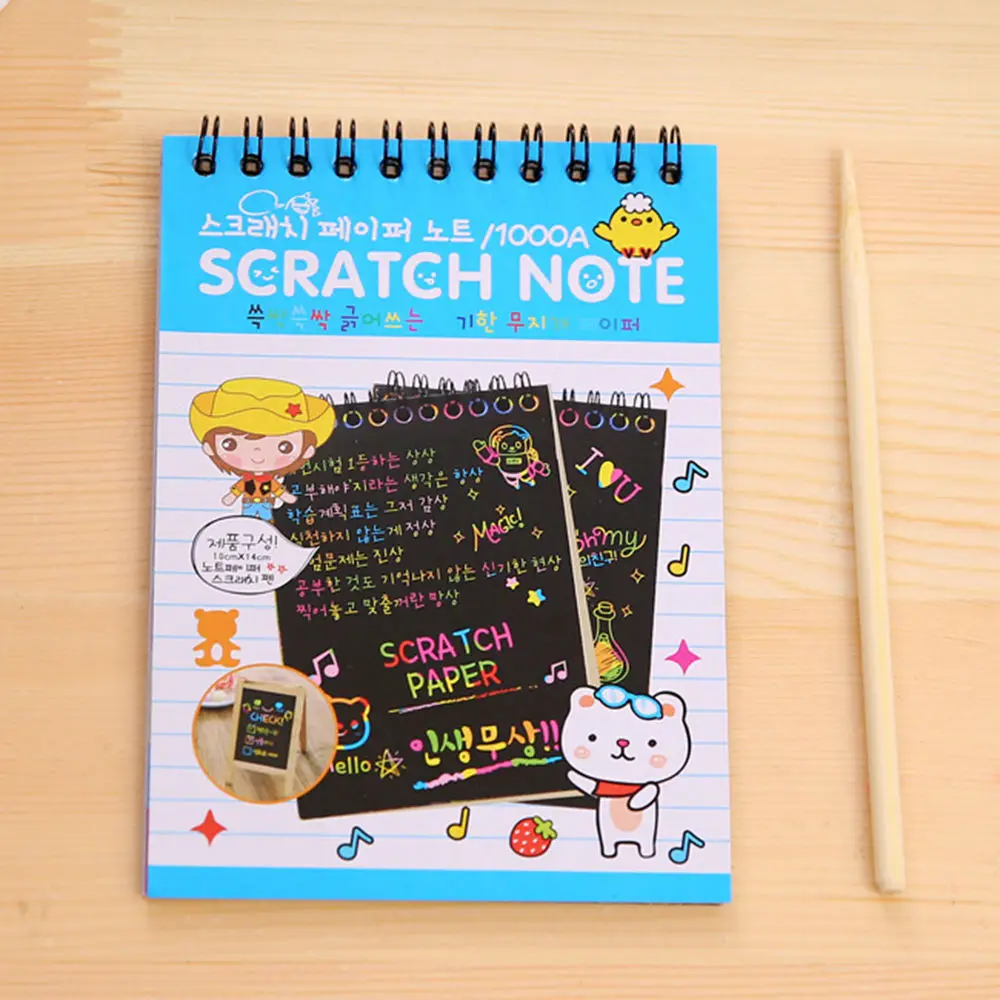 스크래치 페이퍼 노트 /1000A
SCRATCH NOTE
쓱싹쓱싹 긁어쓰는 기한 무지 이퍼
시험 1등하는 상상
부해야지라는 생각은 항상
학습계획표는 그저 감상
실천하지 않는게 정상
험문제는 진상
공부한 것도 기억나지 않는 신기한 현상
찍어놓고 맞출꺼란 망상
MAGIC!
I U
oh my
의친귀
제품구성!
10cmX14cm
노트페이퍼
스크래치 펜
SCRATCH
PAPER
CHECK!
hello
인생무상!!